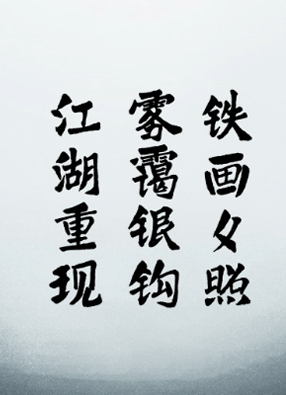 铁画夕照
雾霭银钩
江湖重现